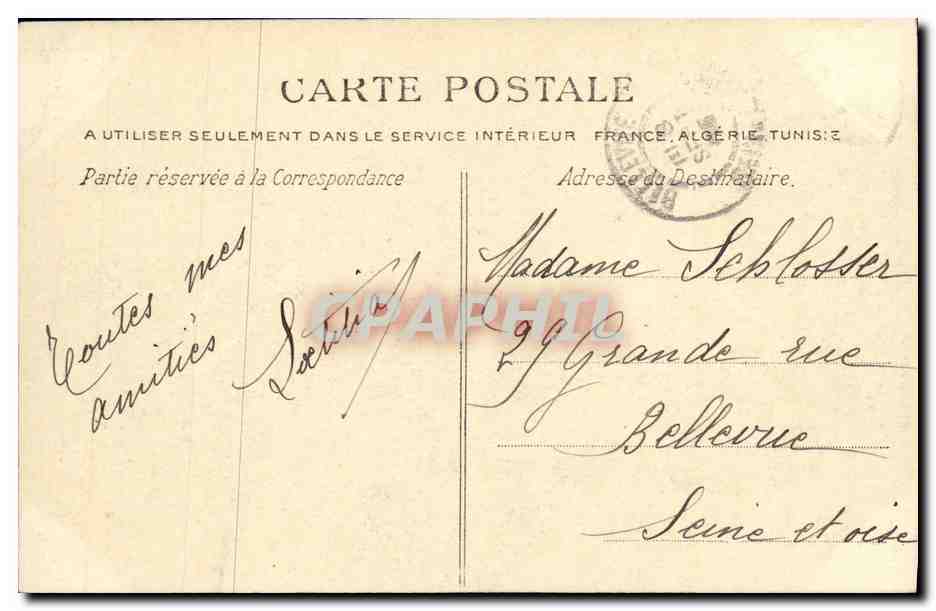 CARTE POSTALE
A UTILISER SEULEMENT DANS LE SERVICE INTÉRIEUR FRANCE, ALGÉRIE, TUNISIE
Partie réservée à la Correspondance
Adresse du Destinataire.
Toutes mes
amitiés
Laetitia
Madame Schlosser
29 Grande rue
Bellevue
Seine et oise
CPAPHIL
BELLEVUE